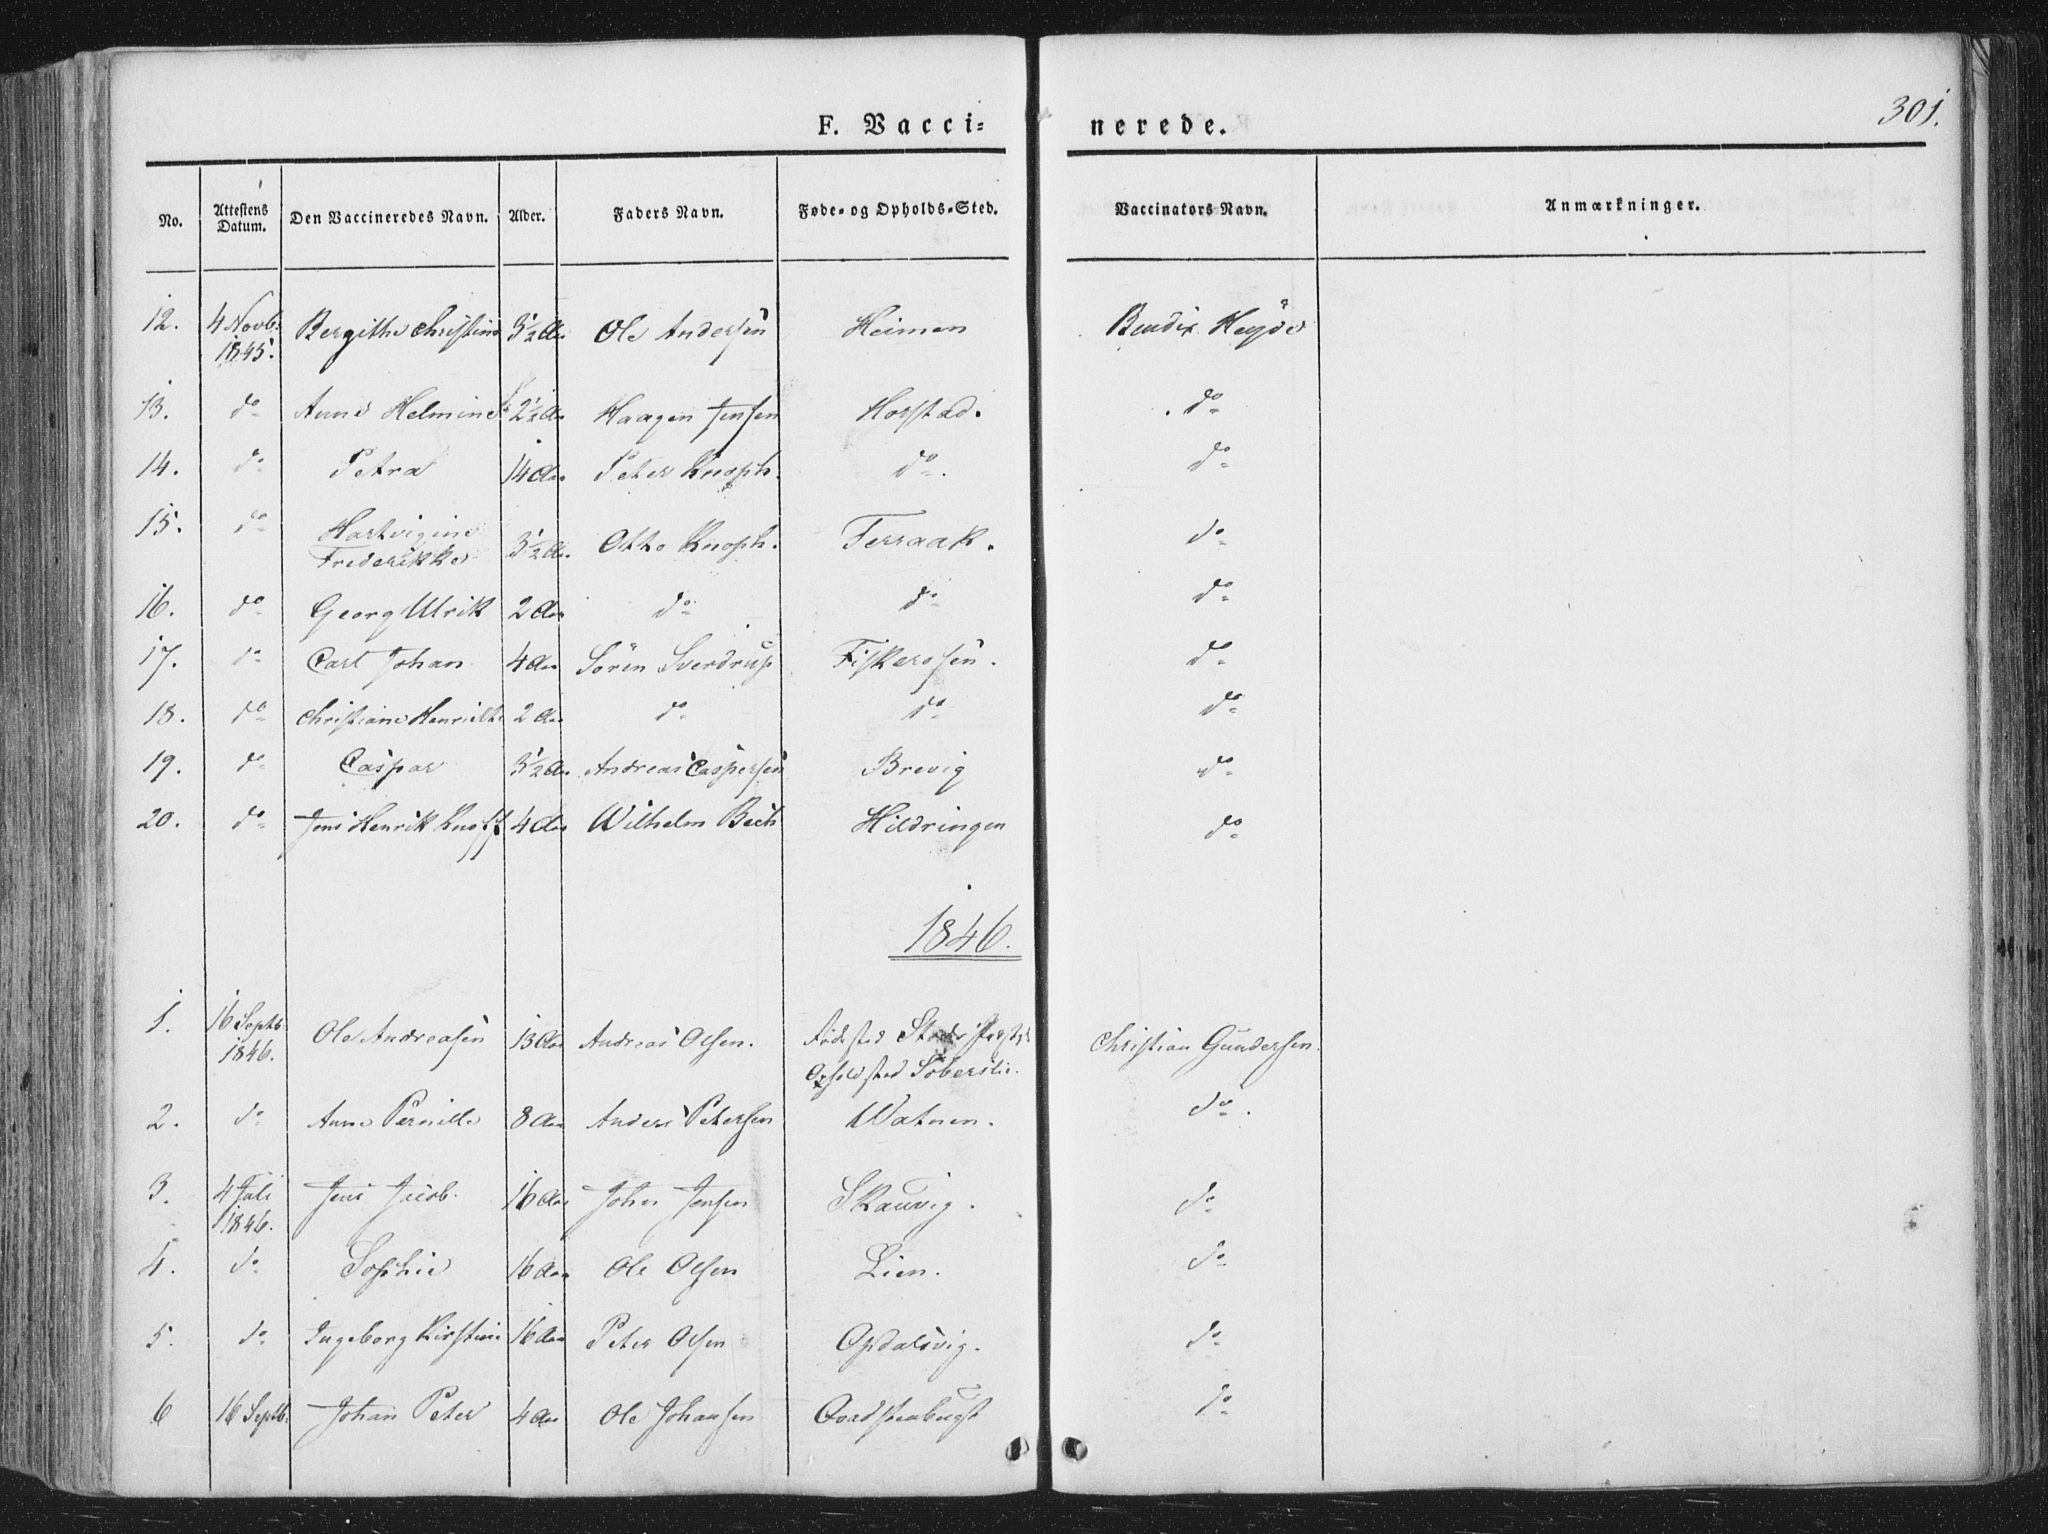 301.
F. Vacci- nerede.
No. Attestens Datum. Den Vaccineredes Navn. Alder. Faders Navn. Føde- og Opholds-Sted. Vaccinators Navn. Anmærkninger.
12. 4 Novb. 1845. Bergithe Christine 3½ Aar Ole Andersen Heimen Bendix Heyde
13. do Anne Helmine 2½ Aar Haagen Jensen Horstad. do
14. do Petra 14 Aar Peter Knoph. do. do
15. do Hartvigine Frederikke 3½ Aar. Otto Knoph. Terraak. do
16. do Georg Ulrik 2 Aar do do do
17. do Carl Johan 4 Aar Sören Sverdrup Fiskerosen. do
18. do Christiane Henrikke 2 Aar do do do
19. do Caspar 3½ Aar Andreas Caspersen Brevig do
20. do Jens Henrik Knoff 4 Aar Wilhelm Bech Hildringen do
1846.
1. 16 Septb. 1846. Ole Andreasen 13 Aar Andreas Olsen. Födested Opholdsted Christian Gundersen.
2. do Anne Pernille 8 Aar Anders Petersen Watnen. do.
3. 4 Juli 1846. Jens Jacob. 16 Aar John Jensen Skauvig. do
4. do Sophie 16 Aar Ole Olsen Lien. do
5. do Ingeborg Kirstine 16 Aar Peter Olsen Opdalsvig. do
6 16 Septb. Johan Peter 4 Aar Ole Johansen do